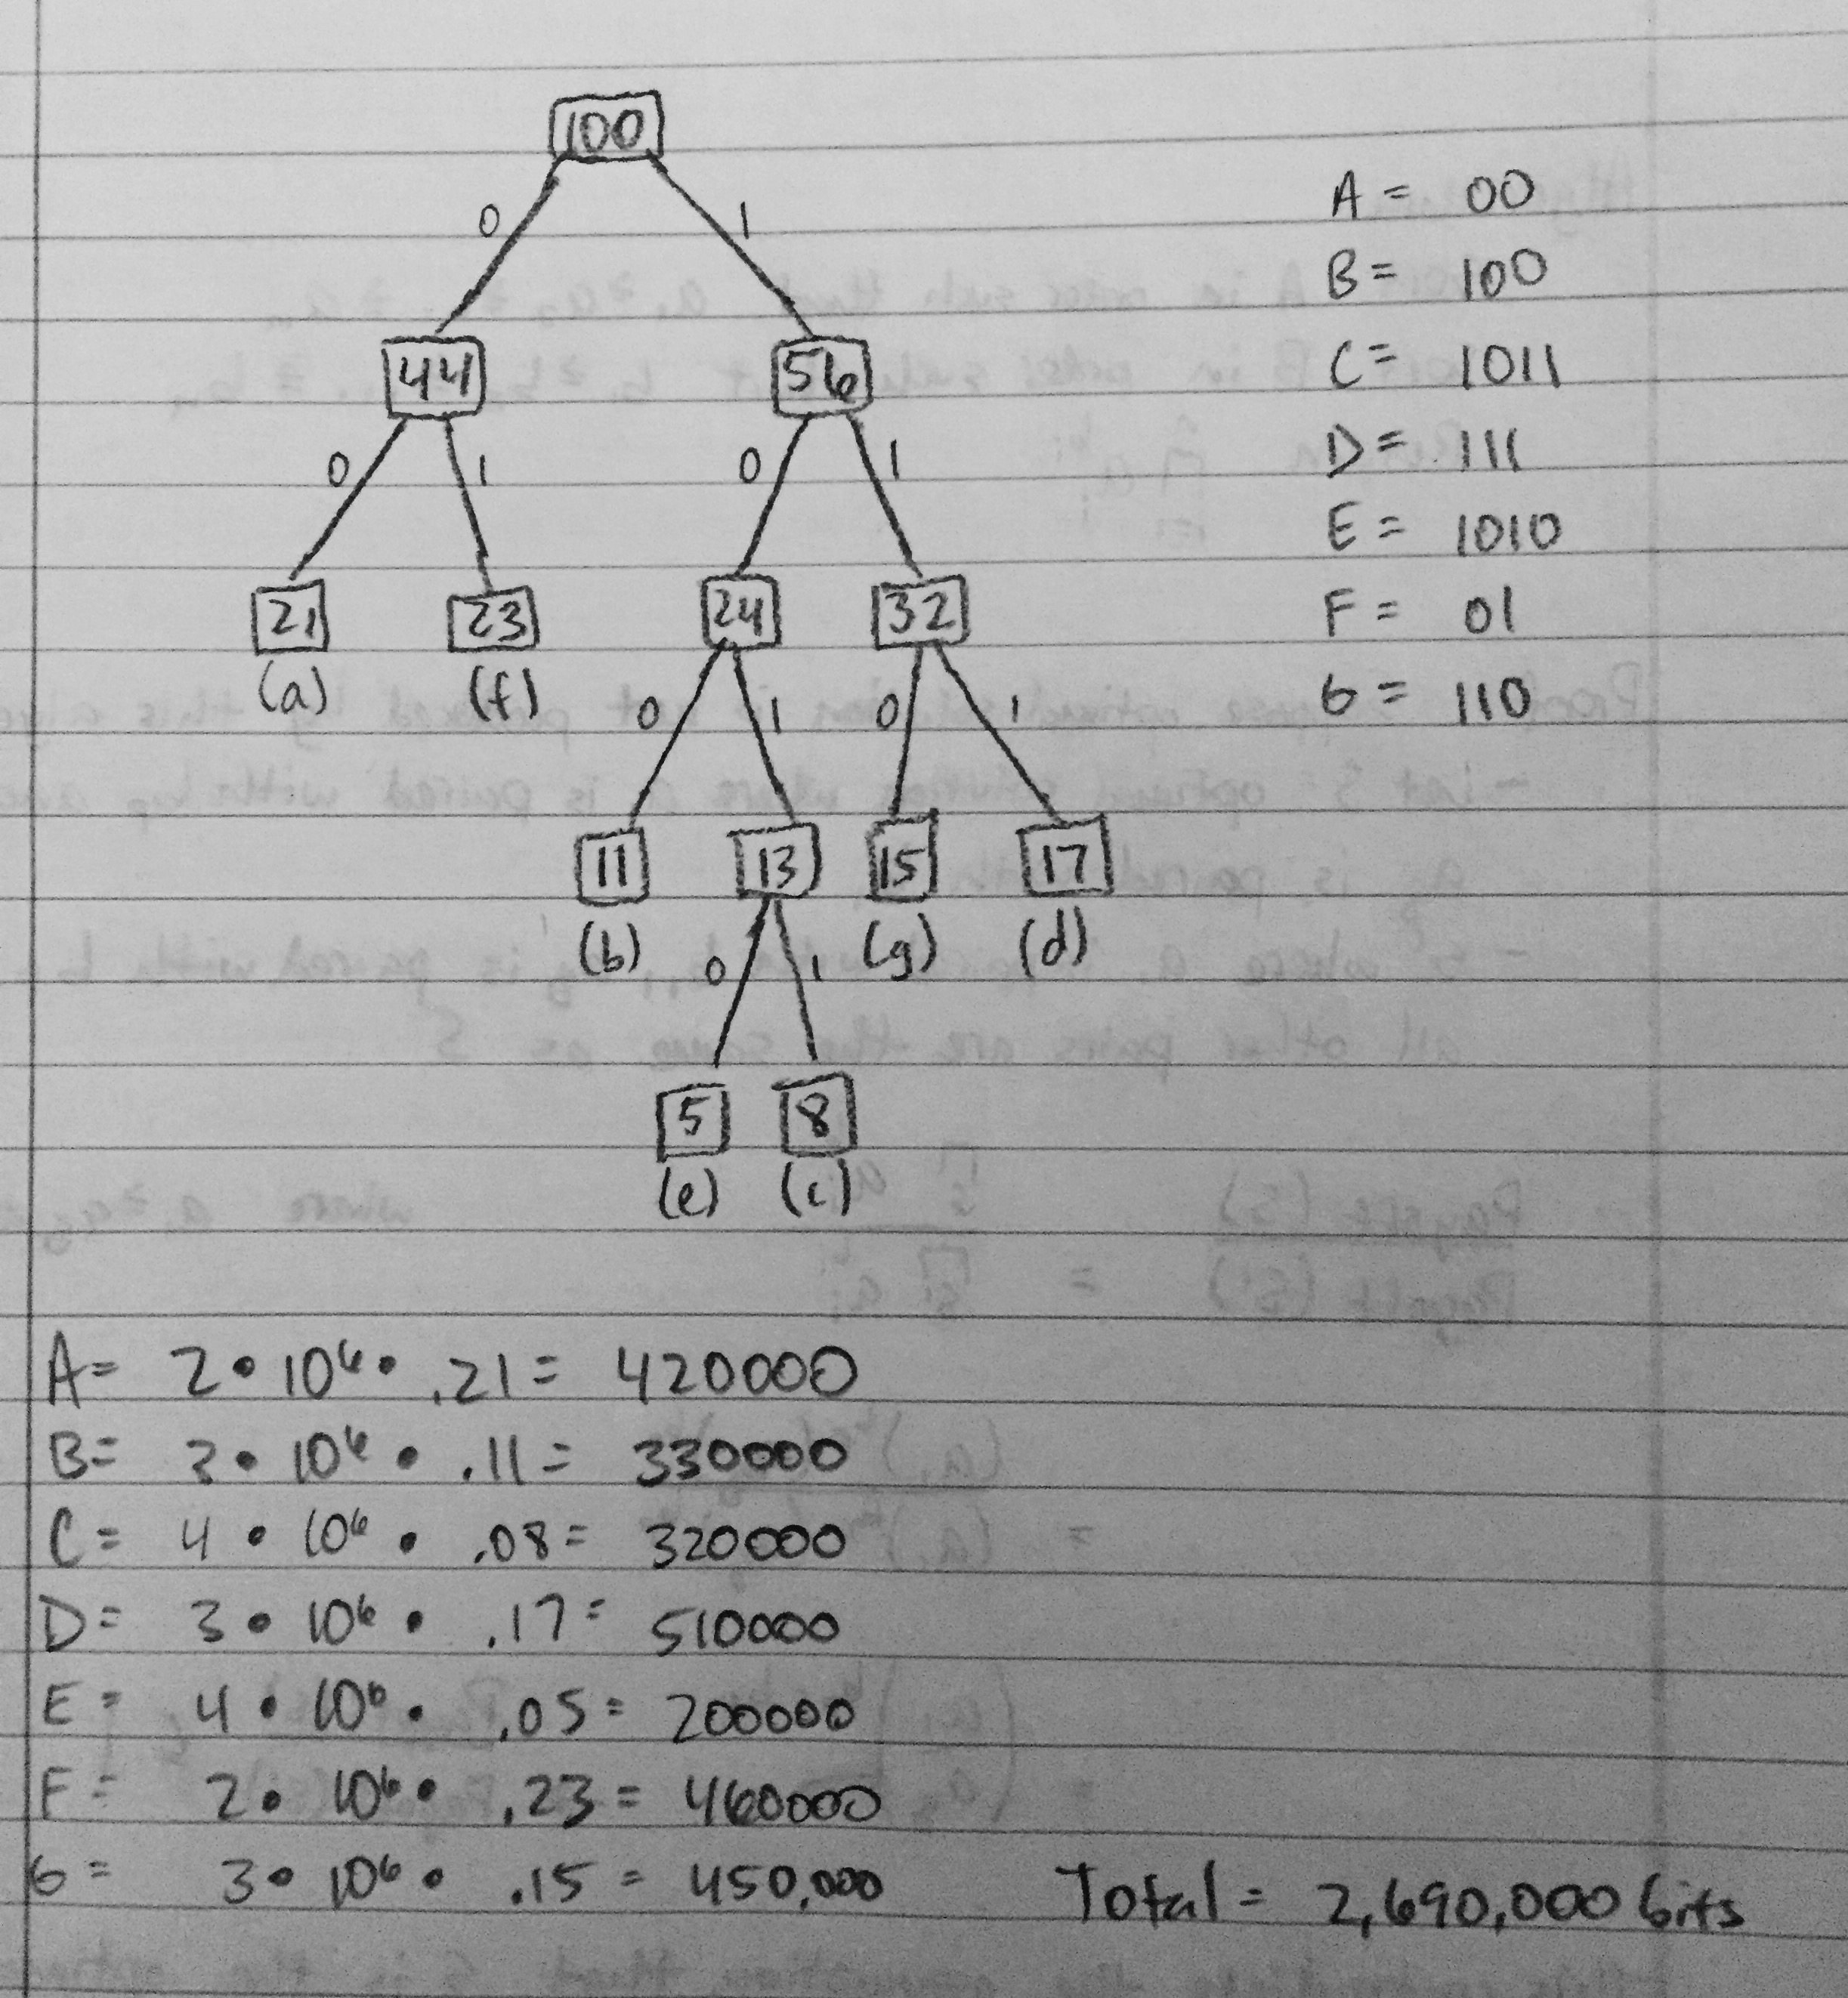 100
0 1
44 56
0 1 0 1
21 23 24 32
(a) (f)
0 1 0 1
11 13 15 17
(b) (g) (d)
0 1
5 8
(e) (c)
A = 00
B = 100
C = 1011
D = 111
E = 1010
F = 01
G = 110
A = 2 • 10⁶ • .21 = 420000
B = 3 • 10⁶ • .11 = 330000
C = 4 • 10⁶ • .08 = 320000
D = 3 • 10⁶ • .17 = 510000
E = 4 • 10⁶ • .05 = 200000
F = 2 • 10⁶ • .23 = 460000
G = 3 • 10⁶ • .15 = 450,000
Total = 2,690,000 bits